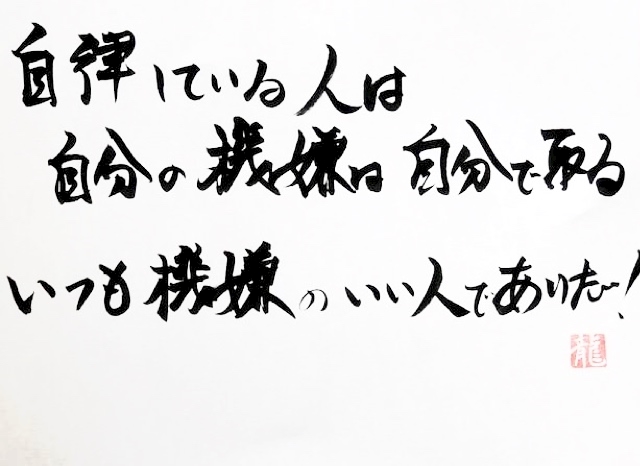 自律している人は
自分の機嫌は自分で取る
いつも機嫌のいい人でありたい!
龍